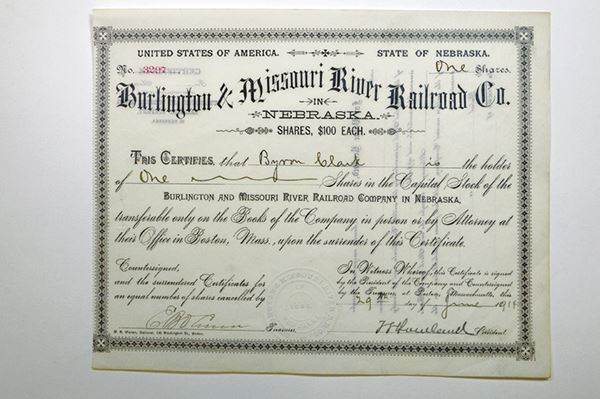 UNITED STATES OF AMERICA. STATE OF NEBRASKA.
No. 3297 One Shares.
Burlington & Missouri River Railroad Co.
IN
NEBRASKA.
SHARES, $100 EACH.
THIS CERTIFIES, that Byron Clark is the holder
of One Shares in the Capital Stock of the
BURLINGTON AND MISSOURI RIVER RAILROAD COMPANY IN NEBRASKA,
transferable only on the Books of the Company in person or by Attorney at
their Office in Boston, Mass., upon the surrender of this Certificate.
Countersigned,
and the surrendered Certificates for
an equal number of shares cancelled by
Treasurer.
In Witness Whereof, this Certificate is signed
by the President of the Company and Countersigned
by the Treasurer, at Boston, Massachusetts, this
29th day of June
President.